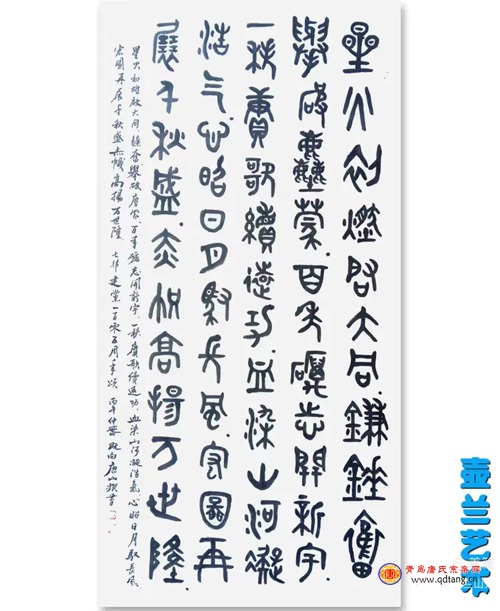 星火初燃启大同鎌錘奮
舉破塵蒙百年礪志開新宇
一秩賡歌續遠功血染山河凝
浩气心昭日月馭長風宏圖再
展千秋盛赤帜高揚万世隆
星火初燃啟大同鎌奮舉破塵蒙百年礪志開新宇一秩賡歌續遠功血染山河凝浩氣心昭日月馭長風
宏圖再展千秋盛赤幟高揚万世隆七律建党一百零五周年頌丙午仲唐山撰書
壶兰艺术
青岛唐氏宗亲网
www.qdtang.cn